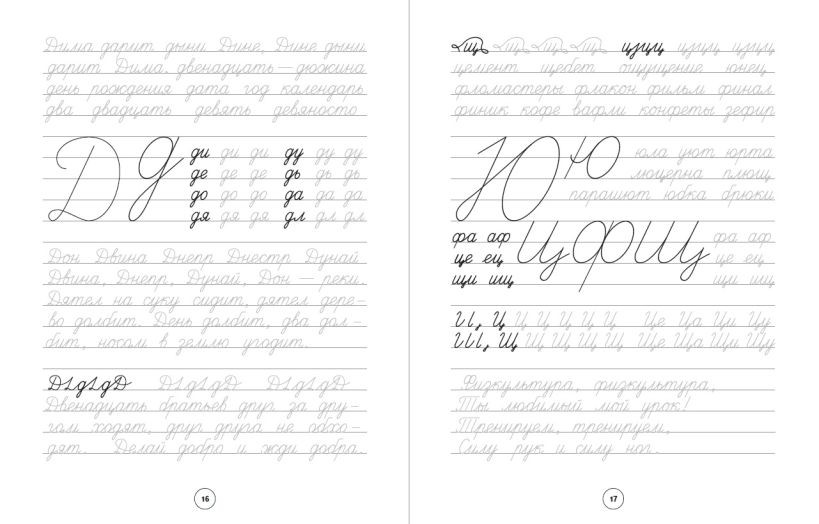 Дима дарит дыни Дине, Дине дыни
дарит Дима. двенадцать — дюжина
день рождения дата год календарь
два двадцать девять девяносто
Д д
ди ди ди ду ду ду
де де де дь дь дь
до до до да да да
дя дя дя дл дл дл
Дон Двина Днепр Днестр Дунай
Двина, Днепр, Дунай, Дон — реки.
Дятел на суку сидит, дятел дере-
во долбит. День долбит, два дол-
бит, носом в землю угодит.
Двенадцать братьев друг за дру-
гом ходят, друг друга не обхо-
дят. Делай добро и жди добра.
16
цемент щебет ощущение юнец
фломастеры флакон фильм финал
финик кофе вафли конфеты зефир
Ю ю юла уют юрта
люцерна плющ
парашют юбка брюки
фа аф Ц Ф Щ фа аф
це ец це ец
щи ищ щи ищ
И, Ц Ц Ц Ц Ц Ц Це Ца Ци Цу
Ш, Щ Щ Щ Щ Щ Щ Ще Ща Щи Щу
Физкультура, физкультура,
Ты любимый мой урок!
Тренируем, тренируем,
Силу рук и силу ног.
17